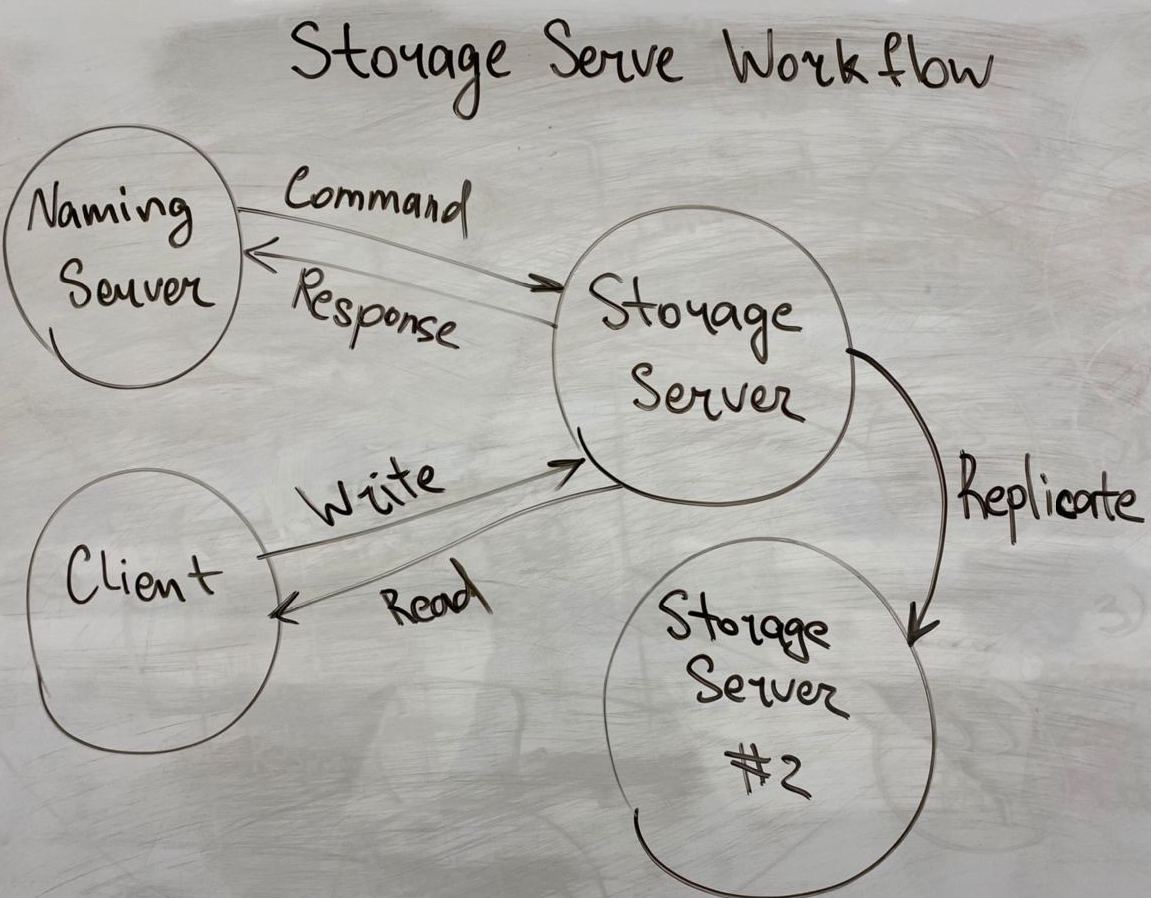 Storage Serve Workflow
Naming
Server
Command
Response
Storage
Server
Write
Read
Client
Replicate
Storage
Server
#2